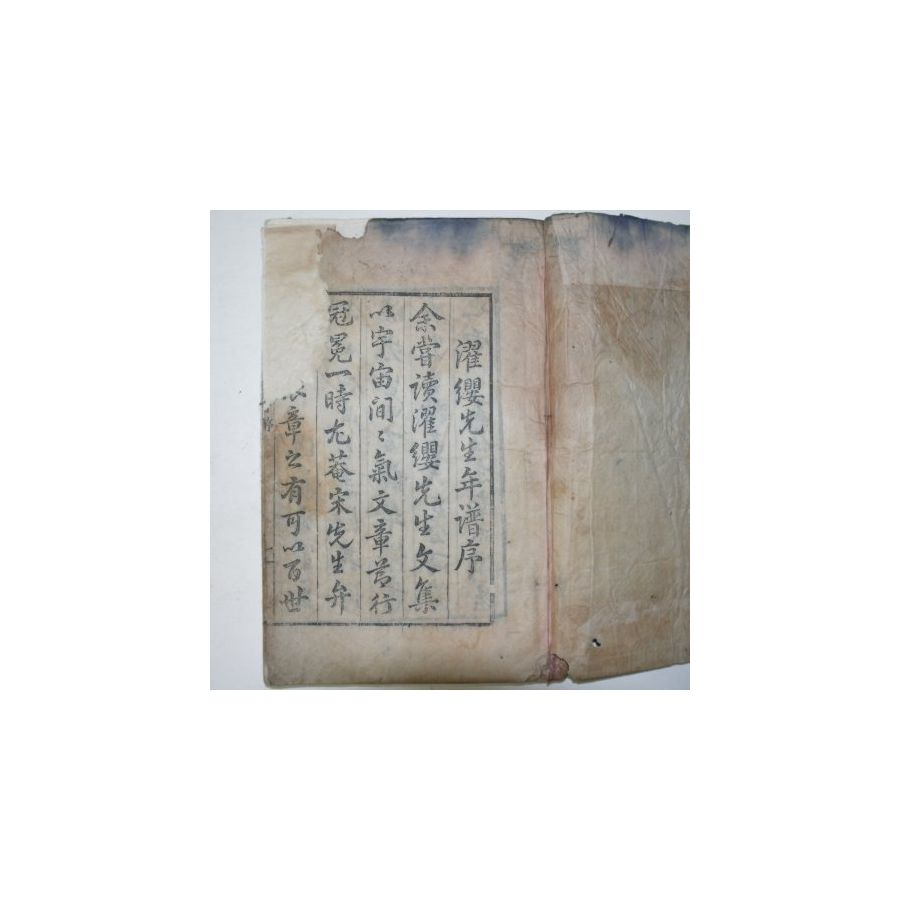 濯纓先生年譜序
余嘗讀濯纓先生文集
以宇宙間〻氣文章節行
冠冕一時尤菴宋先生弁
章之有可以百世